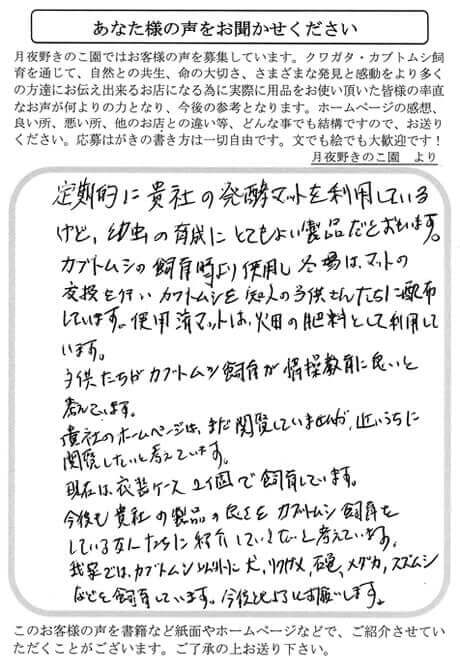 あなた様の声をお聞かせください
月夜野きのこ園ではお客様の声を募集しています。クワガタ・カブトムシ飼
育を通じて、自然との共生、命の大切さ、さまざまな発見と感動をより多く
の方達にお伝え出来るお店になる為に実際に用品をお使い頂いた皆様の率直
なお声が何よりの力となり、今後の参考となります。ホームページの感想、
良い所、悪い所、他のお店との違い等、どんな事でも結構ですので、お送り
ください。応募はがきの書き方は一切自由です。文でも絵でも大歓迎です！
月夜野きのこ園　より
定期的に貴社の発酵マットを利用している
けど、幼虫の育成にとてもよい製品だとおもいます。
カブトムシの飼育時より使用し冬場は、マットの
交換を行いカブトムシを知人の子供さんたちに配布
しています。使用済マットは、畑の肥料として利用して
います。
子供たちがカブトムシ飼育が情操教育に良いと
考えています。
貴社のホームページは、まだ閲覧していませんが、近いうちに
閲覧したいと考えています。
現在は、衣装ケース2個で飼育しています。
今後も貴社の製品の良さをカブトムシ飼育を
している友人たちに紹介していきたいと考えています。
我家では、カブトムシ以外に犬、リクガメ、石亀、メダカ、スズムシ
などを飼育しています。今後ともよろしくお願いします。
このお客様の声を書籍など紙面やホームページなどで、ご紹介させてい
ただくことがございます。ご了承の上お送り下さい。